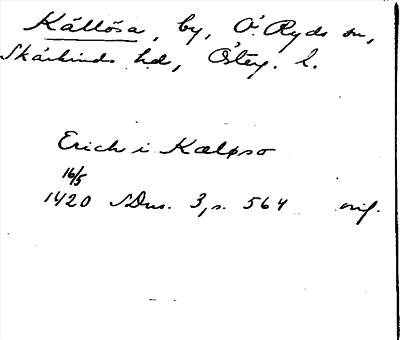 Källösa, by, Ö. Ryds sn,
Skärkinds hd, Östg. l.
Erich i Kaløso
16/5
1420 SDns. 3, s. 564 orig.